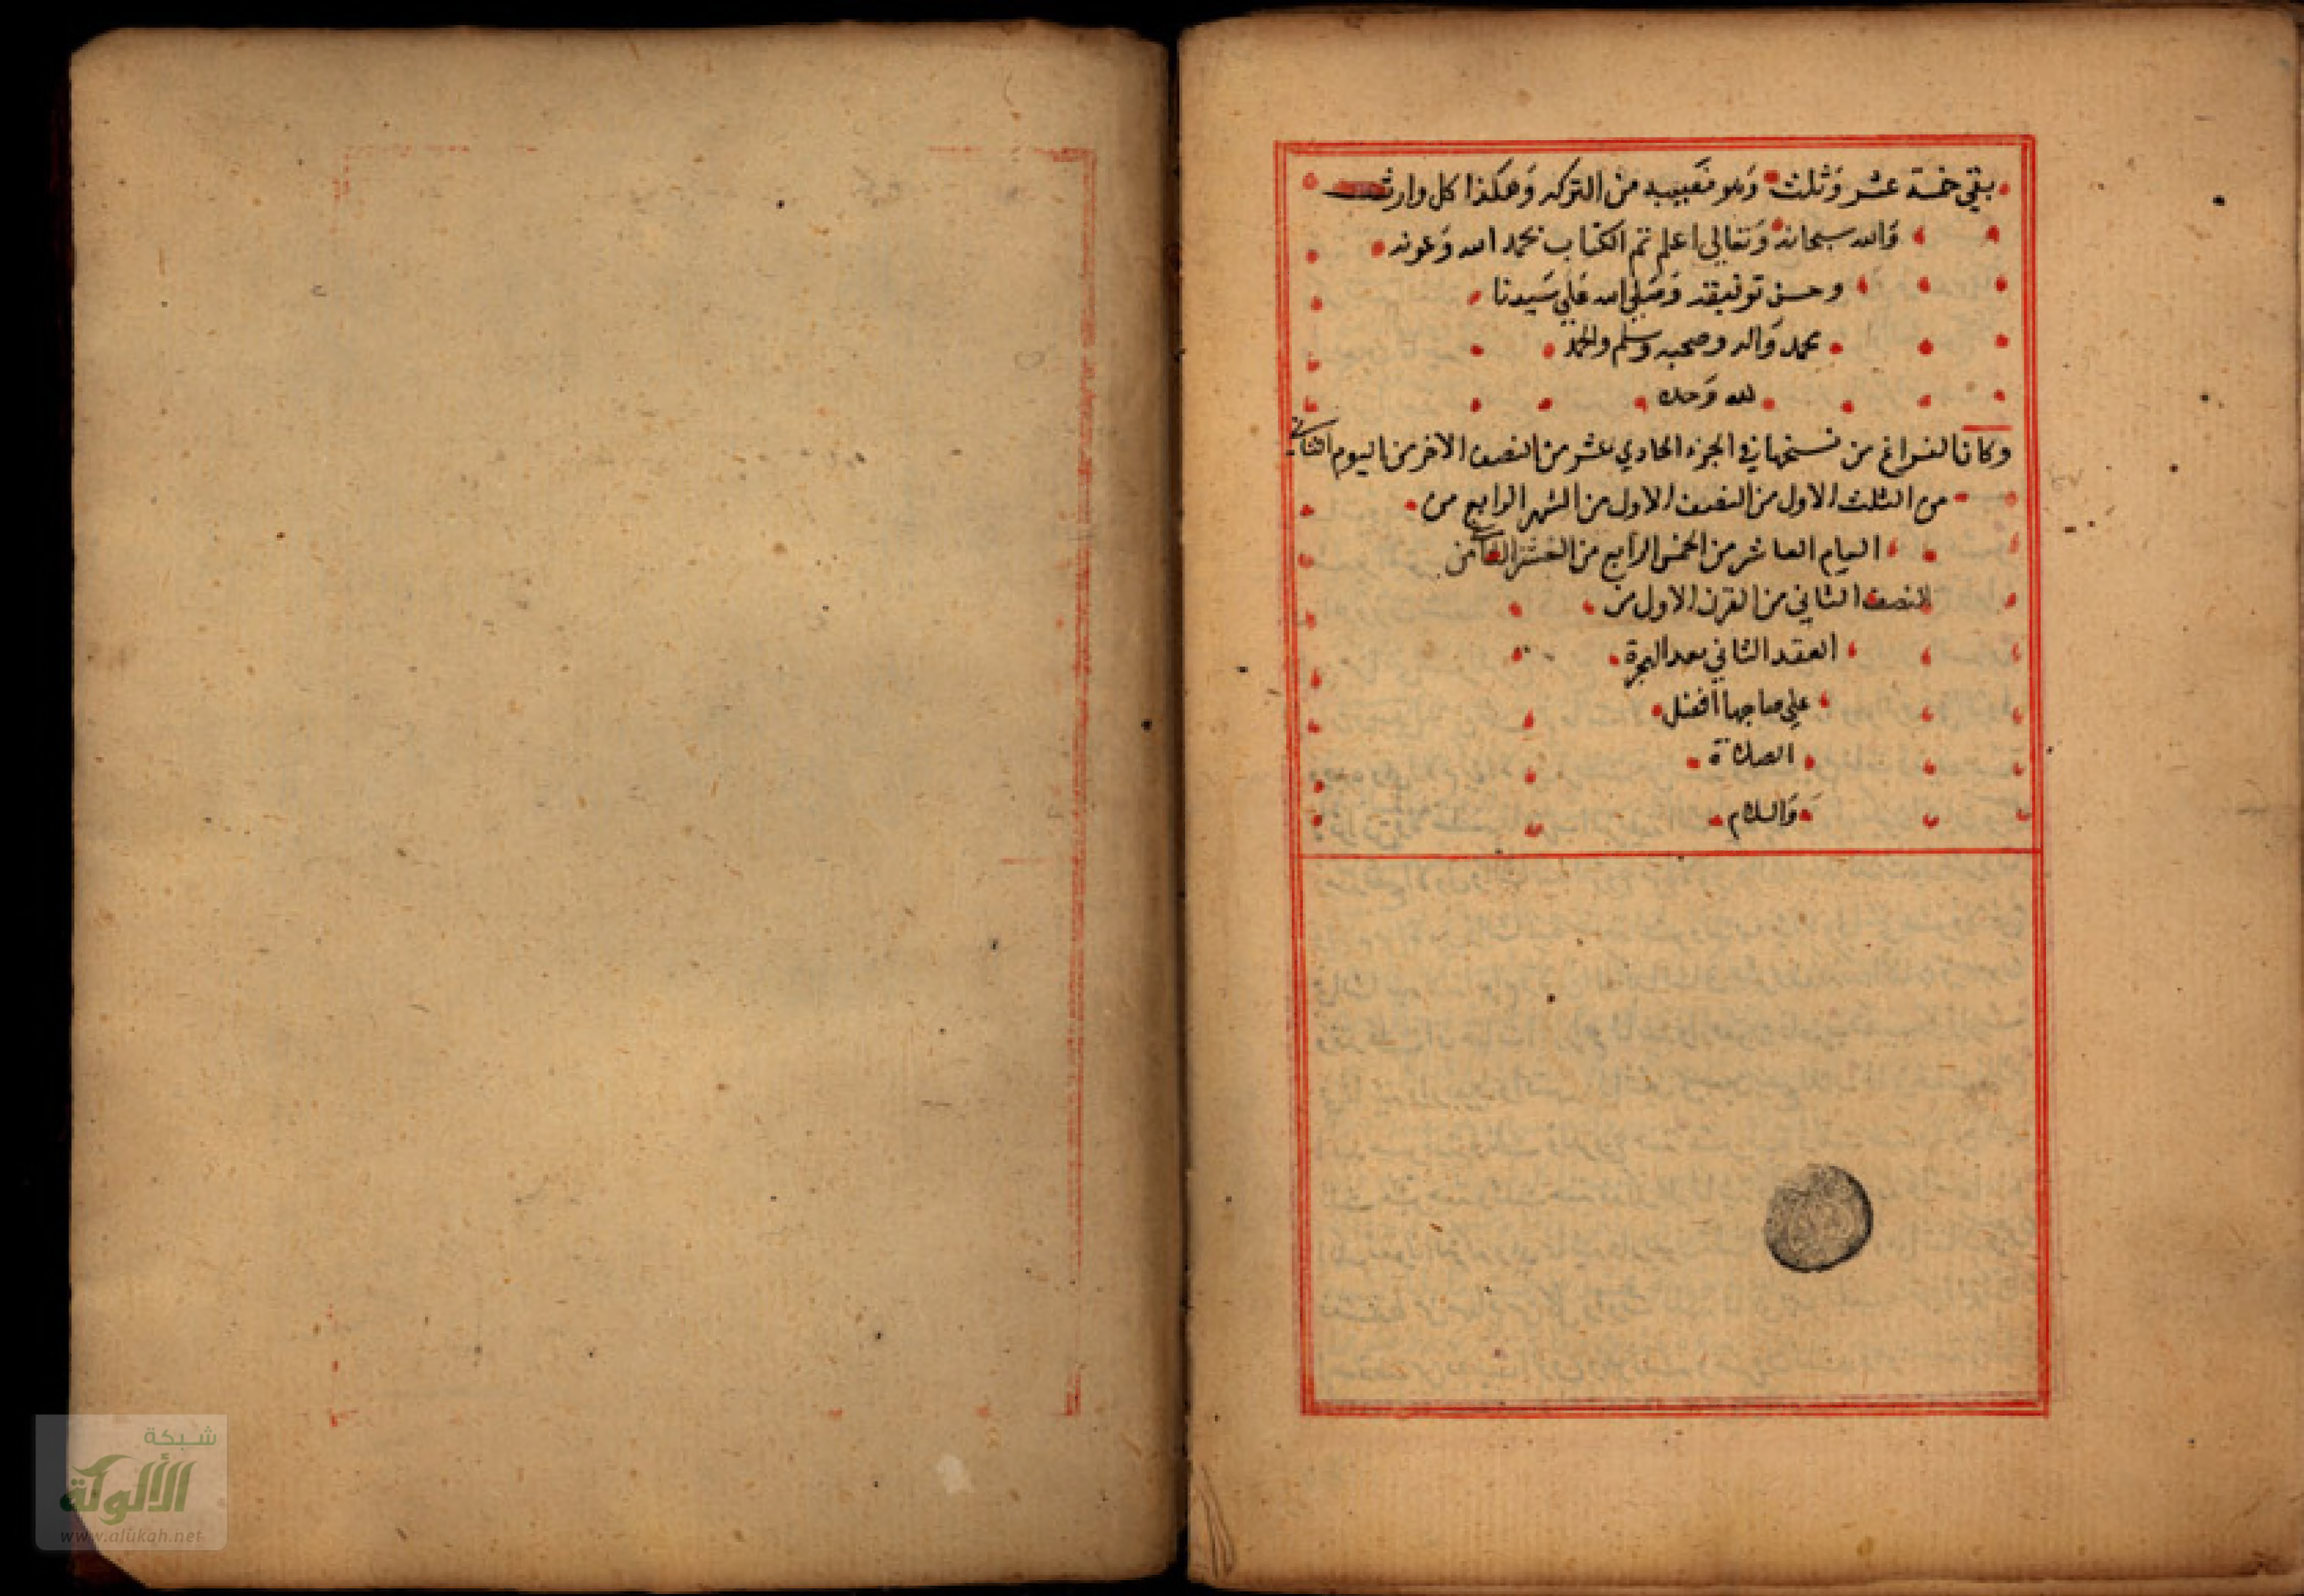 بقي خمسة عشر وثلث وهو نصيبه من التركه وهكذا كل وارث
والله سبحانه وتعالى اعلم تم الكتاب بحمد الله وعونه
وحسن توفيقه وصلى الله على سيدنا
محمد واله وصحبه وسلم والحمد
لله وحده
وكان الفراغ من نسختها في الجزء الحادي عشر من النصف الاخر من اليوم الثاني
من الثلث الاول من النصف الاول من الشهر الرابع من
العام العاشر من الخمس الرابع من العشر من
النصف الثاني من القرن الاول من
العقد الثاني بعد الهجرة
علي صاحبها افضل
الصلاة
والسلام
شبكة
الألوكة
www.alukah.net